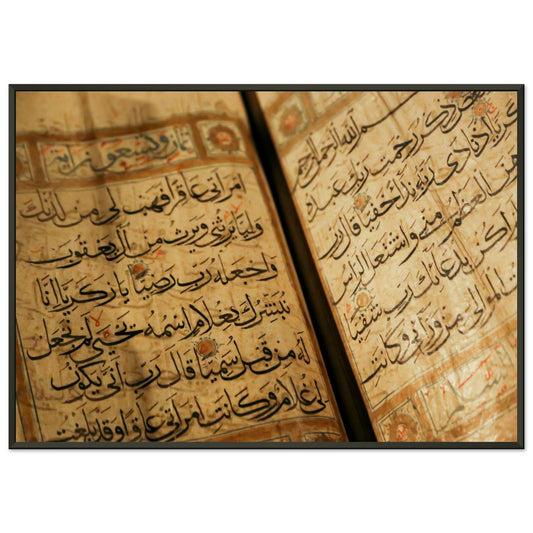 بسم الله الرحمن الرحيم
ذكر رحمت ربك عبده
زكريا اذ نادى ربه نداء خفيا قال رب
وهن العظم مني واشتعل الراس
شيبا ولم اكن بدعائك رب شقيا
الموالي من وراءي وكانت
ثمان وتسعون اية
امراتي عاقرا فهب لي من لدنك
وليا يرثني ويرث من آل يعقوب
واجعله رب رضيا يا زكريا انا
نبشرك بغلام اسمه يحيى لم نجعل
له من قبل سميا قال رب انى يكون
لي غلام وكانت امراتي عاقرا وقد بلغت